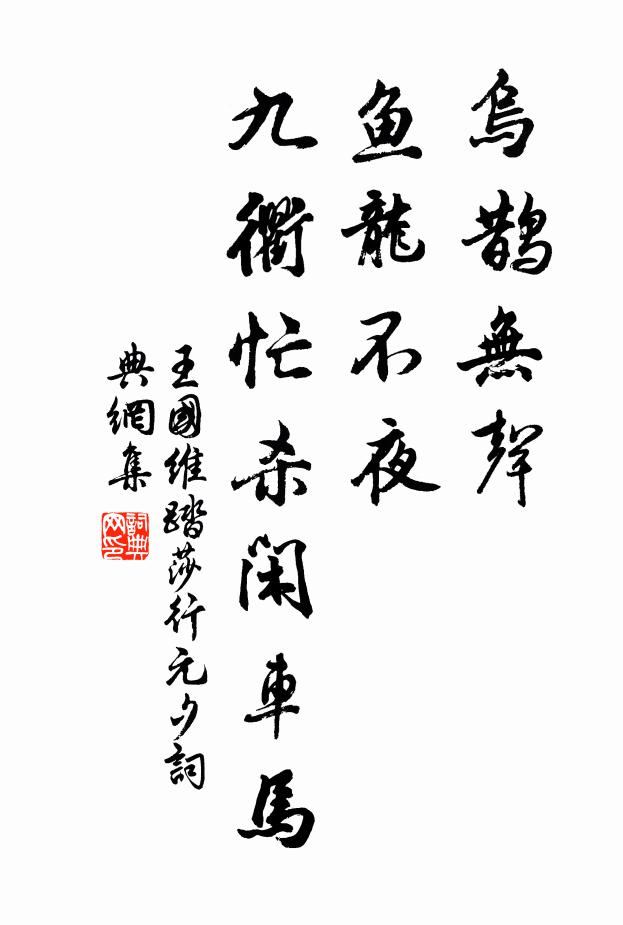 烏鵲無聲
鱼龍不夜
九衢忙杀闲車馬
王國維踏莎行元夕詞
典網集
詞典網印